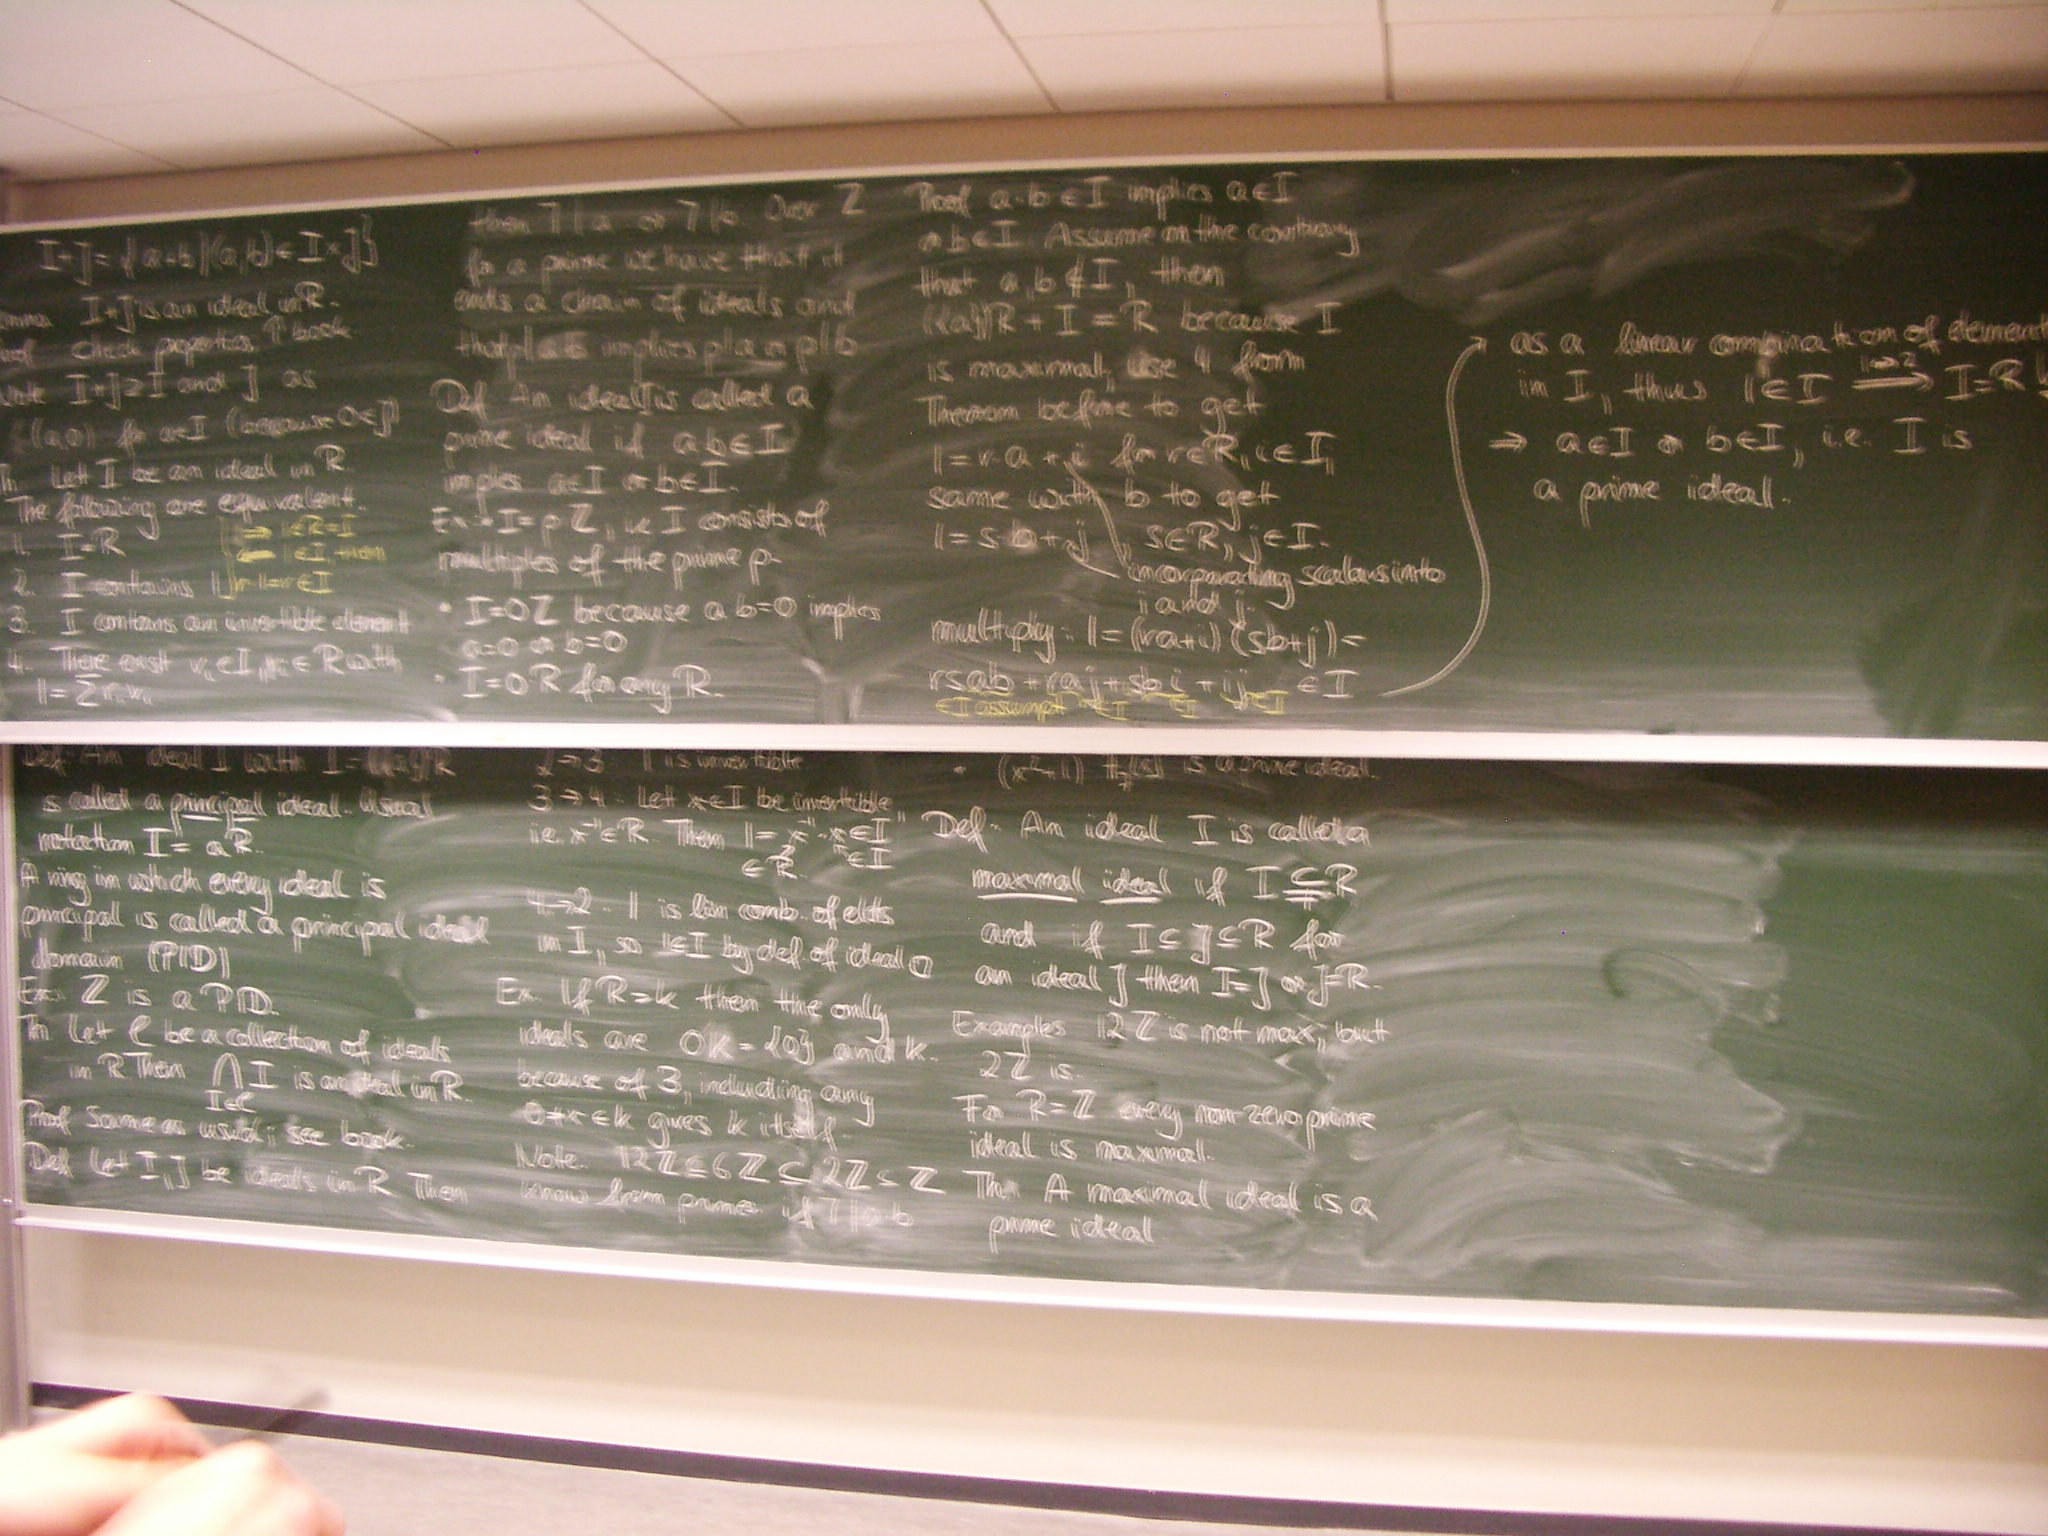 I+J = {a+b | (a,b) ∈ I×J}
I+J is an ideal in R.
check properties ↑ book
I+J ⊇ I and J as
(a,0) for a∈I (because 0∈J)
Let I be an ideal in R.
The following are equivalent.
1. I=R
2. I contains 1
⇒ 1∈R=I
⇐ 1∈I, then
r·1=r∈I
3. I contains an invertible element
4. There exist
1 = Σ
then 7|a or 7|b. Over Z
for a prime we have that it
ends a chain of ideals and
that implies p|a or p|b
Def An ideal I is called a
prime ideal if a·b∈I
implies a∈I or b∈I.
Ex. · I=pZ, ie I consists of
multiples of the prime p.
· I=0Z because a b=0 implies
a=0 or b=0
· I=0R for any R.
Proof a·b∈I implies a∈I
or b∈I. Assume on the contrary
that a,b∉I, then
({a})R + I = R because I
is maximal, use 4 from
Theorem before to get
1=r·a+i for r∈R, i∈I,
same with b to get
1=s·b+j, s∈R, j∈I.
incorporating scalars into
i and j.
multiply: 1=(ra+i)(sb+j)=
rsab+raj+sbi+ij ∈I
∈I assumpt ∈I ∈I ∈I
as a linear combination of elements
in I, thus 1∈I ⟹ 1→2 I=R
⇒ a∈I or b∈I, i.e. I is
a prime ideal.
Def. An ideal I with I=({a})R
is called a principal ideal. Usual
notation I = aR.
A ring in which every ideal is
principal is called a principal ideal
domain (PID)
Ex: Z is a PID.
Th Let C be a collection of ideals
in R. Then ⋂ I is an ideal in R.
I∈C
Proof Same as usual; see book.
Def Let I,J be ideals in R Then
2→3 1 is invertible
3→4 Let x∈I be invertible,
i.e. x⁻¹∈R Then 1= x⁻¹·x∈I
∈R ∈I
4→2 1 is lin comb. of elts
in I, so 1∈I by def. of ideal □
Ex If R=k then the only
ideals are 0k={0} and k.
because of 3, including any
0≠x∈k gives k itself.
Note 12Z⊆6Z⊆2Z⊆Z
know from primes if 7|a·b
is a prime ideal.
Def. An ideal I is called a
maximal ideal if I⊊R
and if I⊆J⊆R for
an ideal J then I=J or J=R.
Examples 12Z is not max, but
2Z is.
For R=Z every non-zero prime
ideal is maximal.
Th A maximal ideal is a
prime ideal